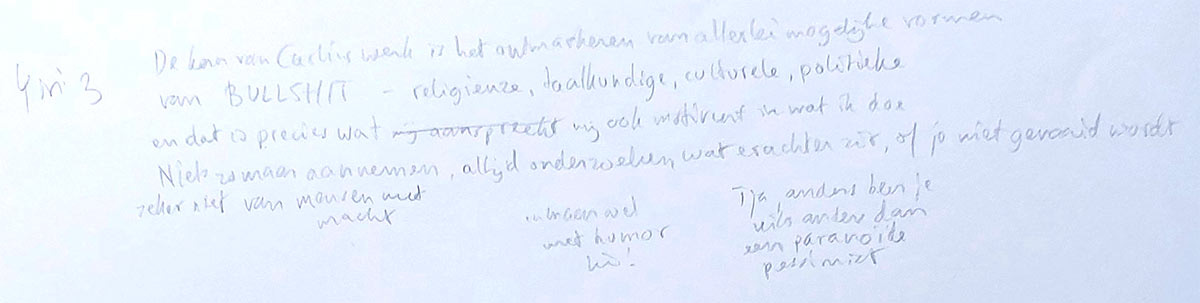 4 in 3
De kern van Carlins werk is het ontmaskeren van allerlei mogelijke vormen
van BULLSHIT - religieuze, taalkundige, culturele, politieke
en dat is precies wat mij aanspreekt mij ook motiveert in wat ik doe
Niets zomaar aannemen, altijd onderzoeken wat erachter zit, of je niet genaaid wordt
zeker niet van mensen met
macht
maar wel
met humor
hè!
Tja, anders ben je
niks anders dan
een paranoïde
pessimist